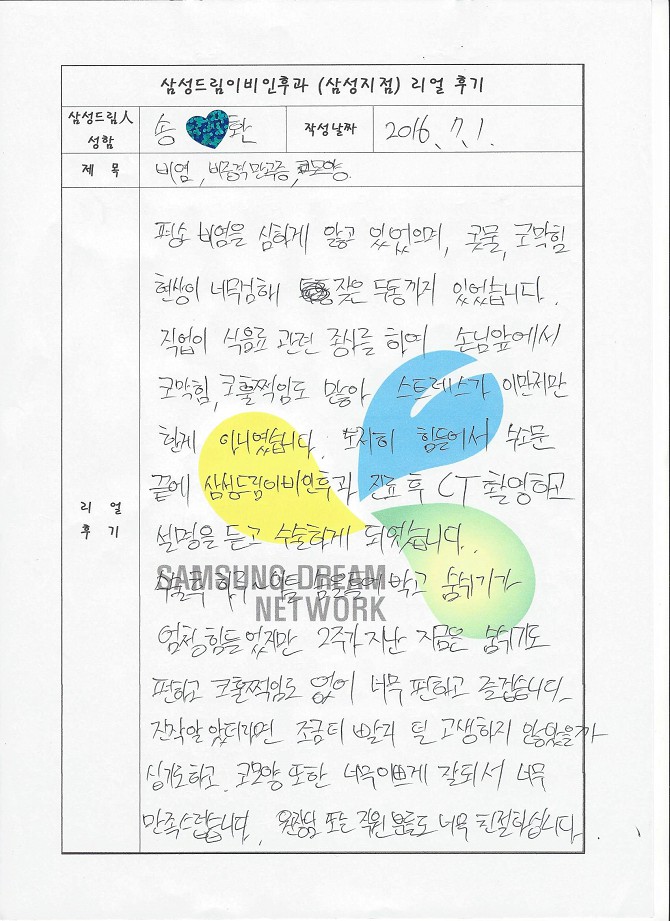 삼성드림이비인후과 (삼성지점) 리얼 후기
삼성드림人 성함
송 환
작성날짜
2016. 7. 1.
제 목
비염, 비중격만곡증, 코모양.
리 얼
후 기
평소 비염을 심하게 앓고 있었으며, 콧물, 코막힘
현상이 너무심해 잦은 두통까지 있었습니다.
직업이 식음료 관련 종사를 하여 손님앞에서
코막힘, 코훌쩍임도 많아 스트레스가 이만저만
한게 아니였습니다. 도저히 힘들어서 수소문
끝에 삼성드림이비인후과 진료 후 CT 촬영하고
설명을 듣고 수술하게 되었습니다.
수술후 하루~이틀 솜을 박고 숨쉬기가
엄청 힘들었지만 2주가 지난 지금은 숨쉬기도
편하고 코훌쩍임도 없이 너무 편하고 즐겁습니다.
진작알았더라면 조금더 빨리 덜 고생하지 않았을까
싶기도하고, 코모양 또한 너무이쁘게 잘되서 너무
만족스럽습니다. 원장님 또는 직원분들도 너무 친절하십니다.
SAMSUNG DREAM
NETWORK